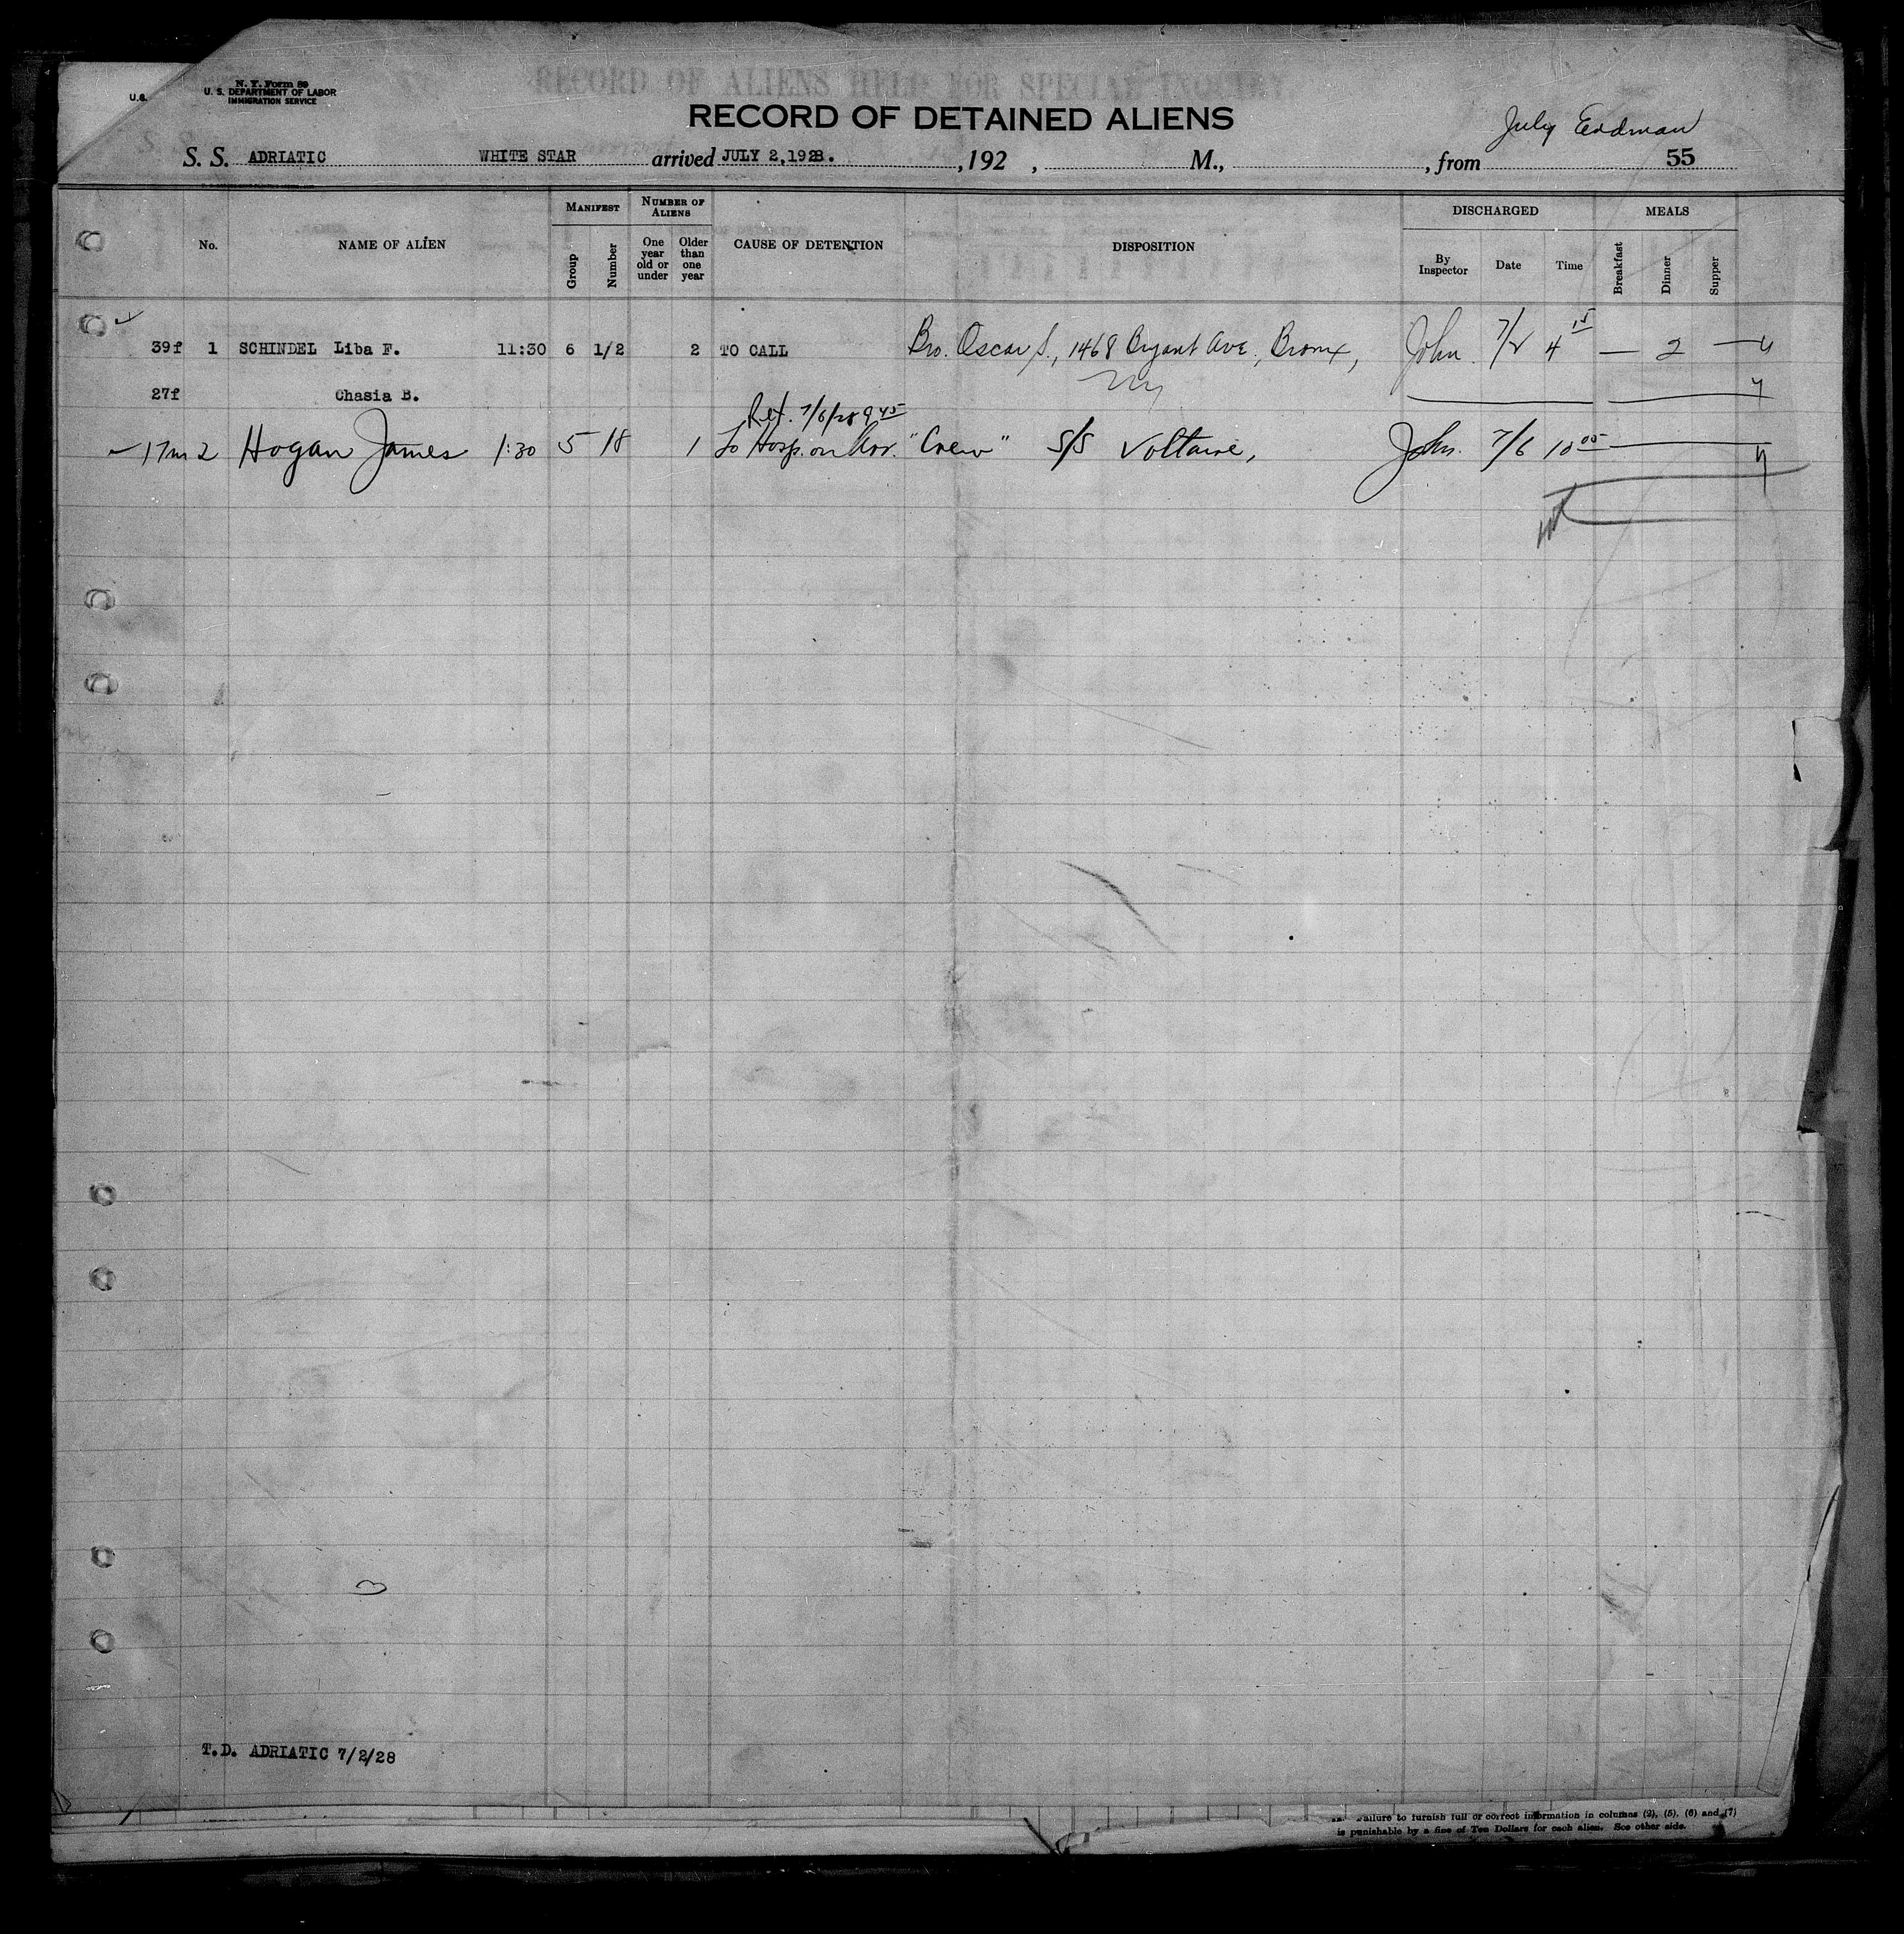 RECORD OF ALIENS HELD FOR SPECIAL INQUIRY
U.S.
N. Y. Form 89
U. S. DEPARTMENT OF LABOR
IMMIGRATION SERVICE
RECORD OF DETAINED ALIENS
July Erdman
S. S. ADRIATIC WHITE STAR arrived JULY 2,1928. , 192 , M., , from 55
MANIFEST NUMBER OF ALIENS DISCHARGED MEALS
No. NAME OF ALIEN Group Number One year old or under Older than one year CAUSE OF DETENTION DISPOSITION By Inspector Date Time Breakfast Dinner Supper
39f 1 SCHINDEL Liba F. 11:30 6 1/2 2 TO CALL Bro. Oscar S., 1468 Bryant Ave., Bronx, John. 7/2 4 15 — 2 —
27f Chasia B. NY
Ret. 7/6/28 9 45
17m 2 Hogan James 1:30 5 18 1 To Hosp. on Arr. "Crew" S/S Voltaire, John. 7/6 10 05
T.D. ADRIATIC 7/2/28
Failure to furnish full or correct information in columns (2), (5), (6) and (7)
is punishable by a fine of Ten Dollars for each alien. See other side.